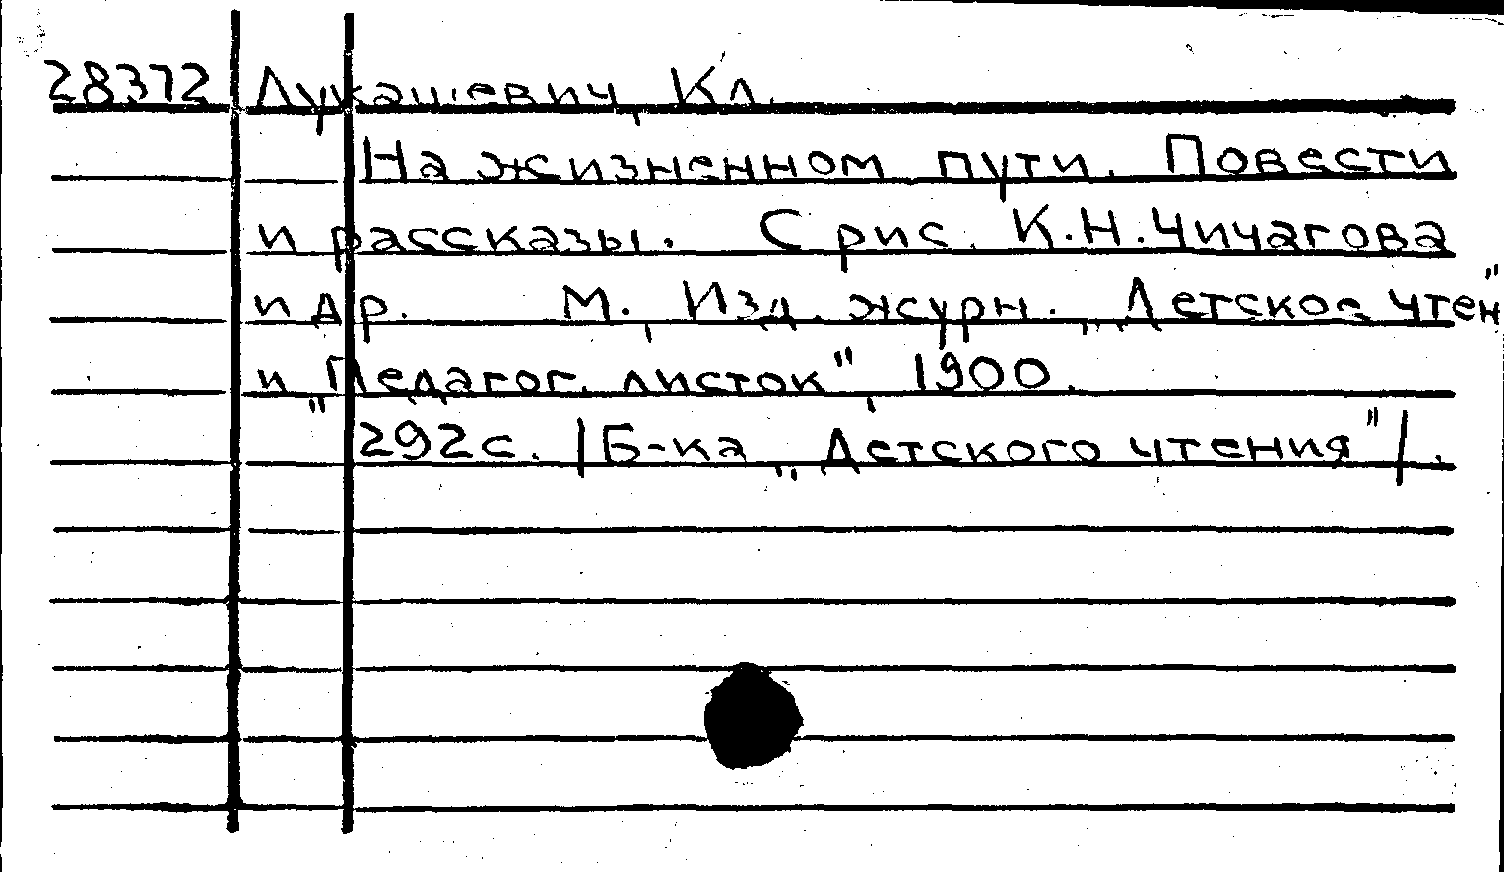 28372 Лукашевич, Кл.
На жизненном пути. Повести
и рассказы. С рис. К.Н.Чичагова
и др. М., Изд. журн. „Детское чтен"
и „Педагог. листок", 1900.
292с. /Б-ка „Детского чтения"/.